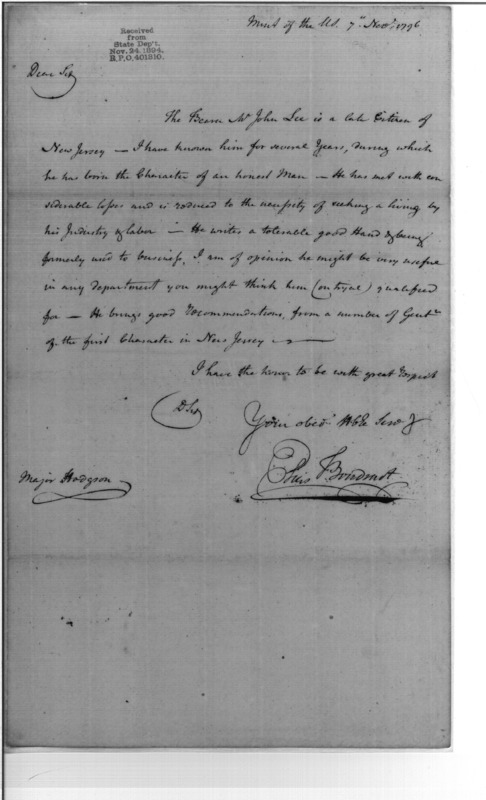 Mint of the US. 7th Novr. 1796
Received
from
State Dep't.
Nov. 24. 1894.
R.P.O. 401810.
Dear Sir
The Bearer Mr John Lee is a late Citizen of
New Jersey — I have known him for several Years, during which
he has born the Character of an honest Man — He has met with con
siderable losses and is reduced to the necessity of seeking a living by
his Industry & labor — He writes a tolerable good Hand & being
formerly used to business, I am of opinion he might be very useful
in any department you might think him (on tryal) qualified
for — He brings good Recommendations, from a number of Gentn
of the first Character in New Jersey —
I have the honor to be with great respect
D Sir
Your obedt Hble Servt
Major Hodgson
Elias Boudinot